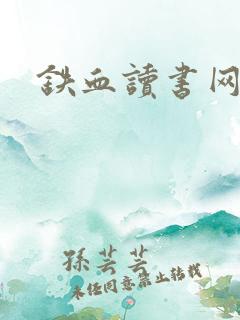 鉄血讀書网
孫芸芸
未经同意禁止转载